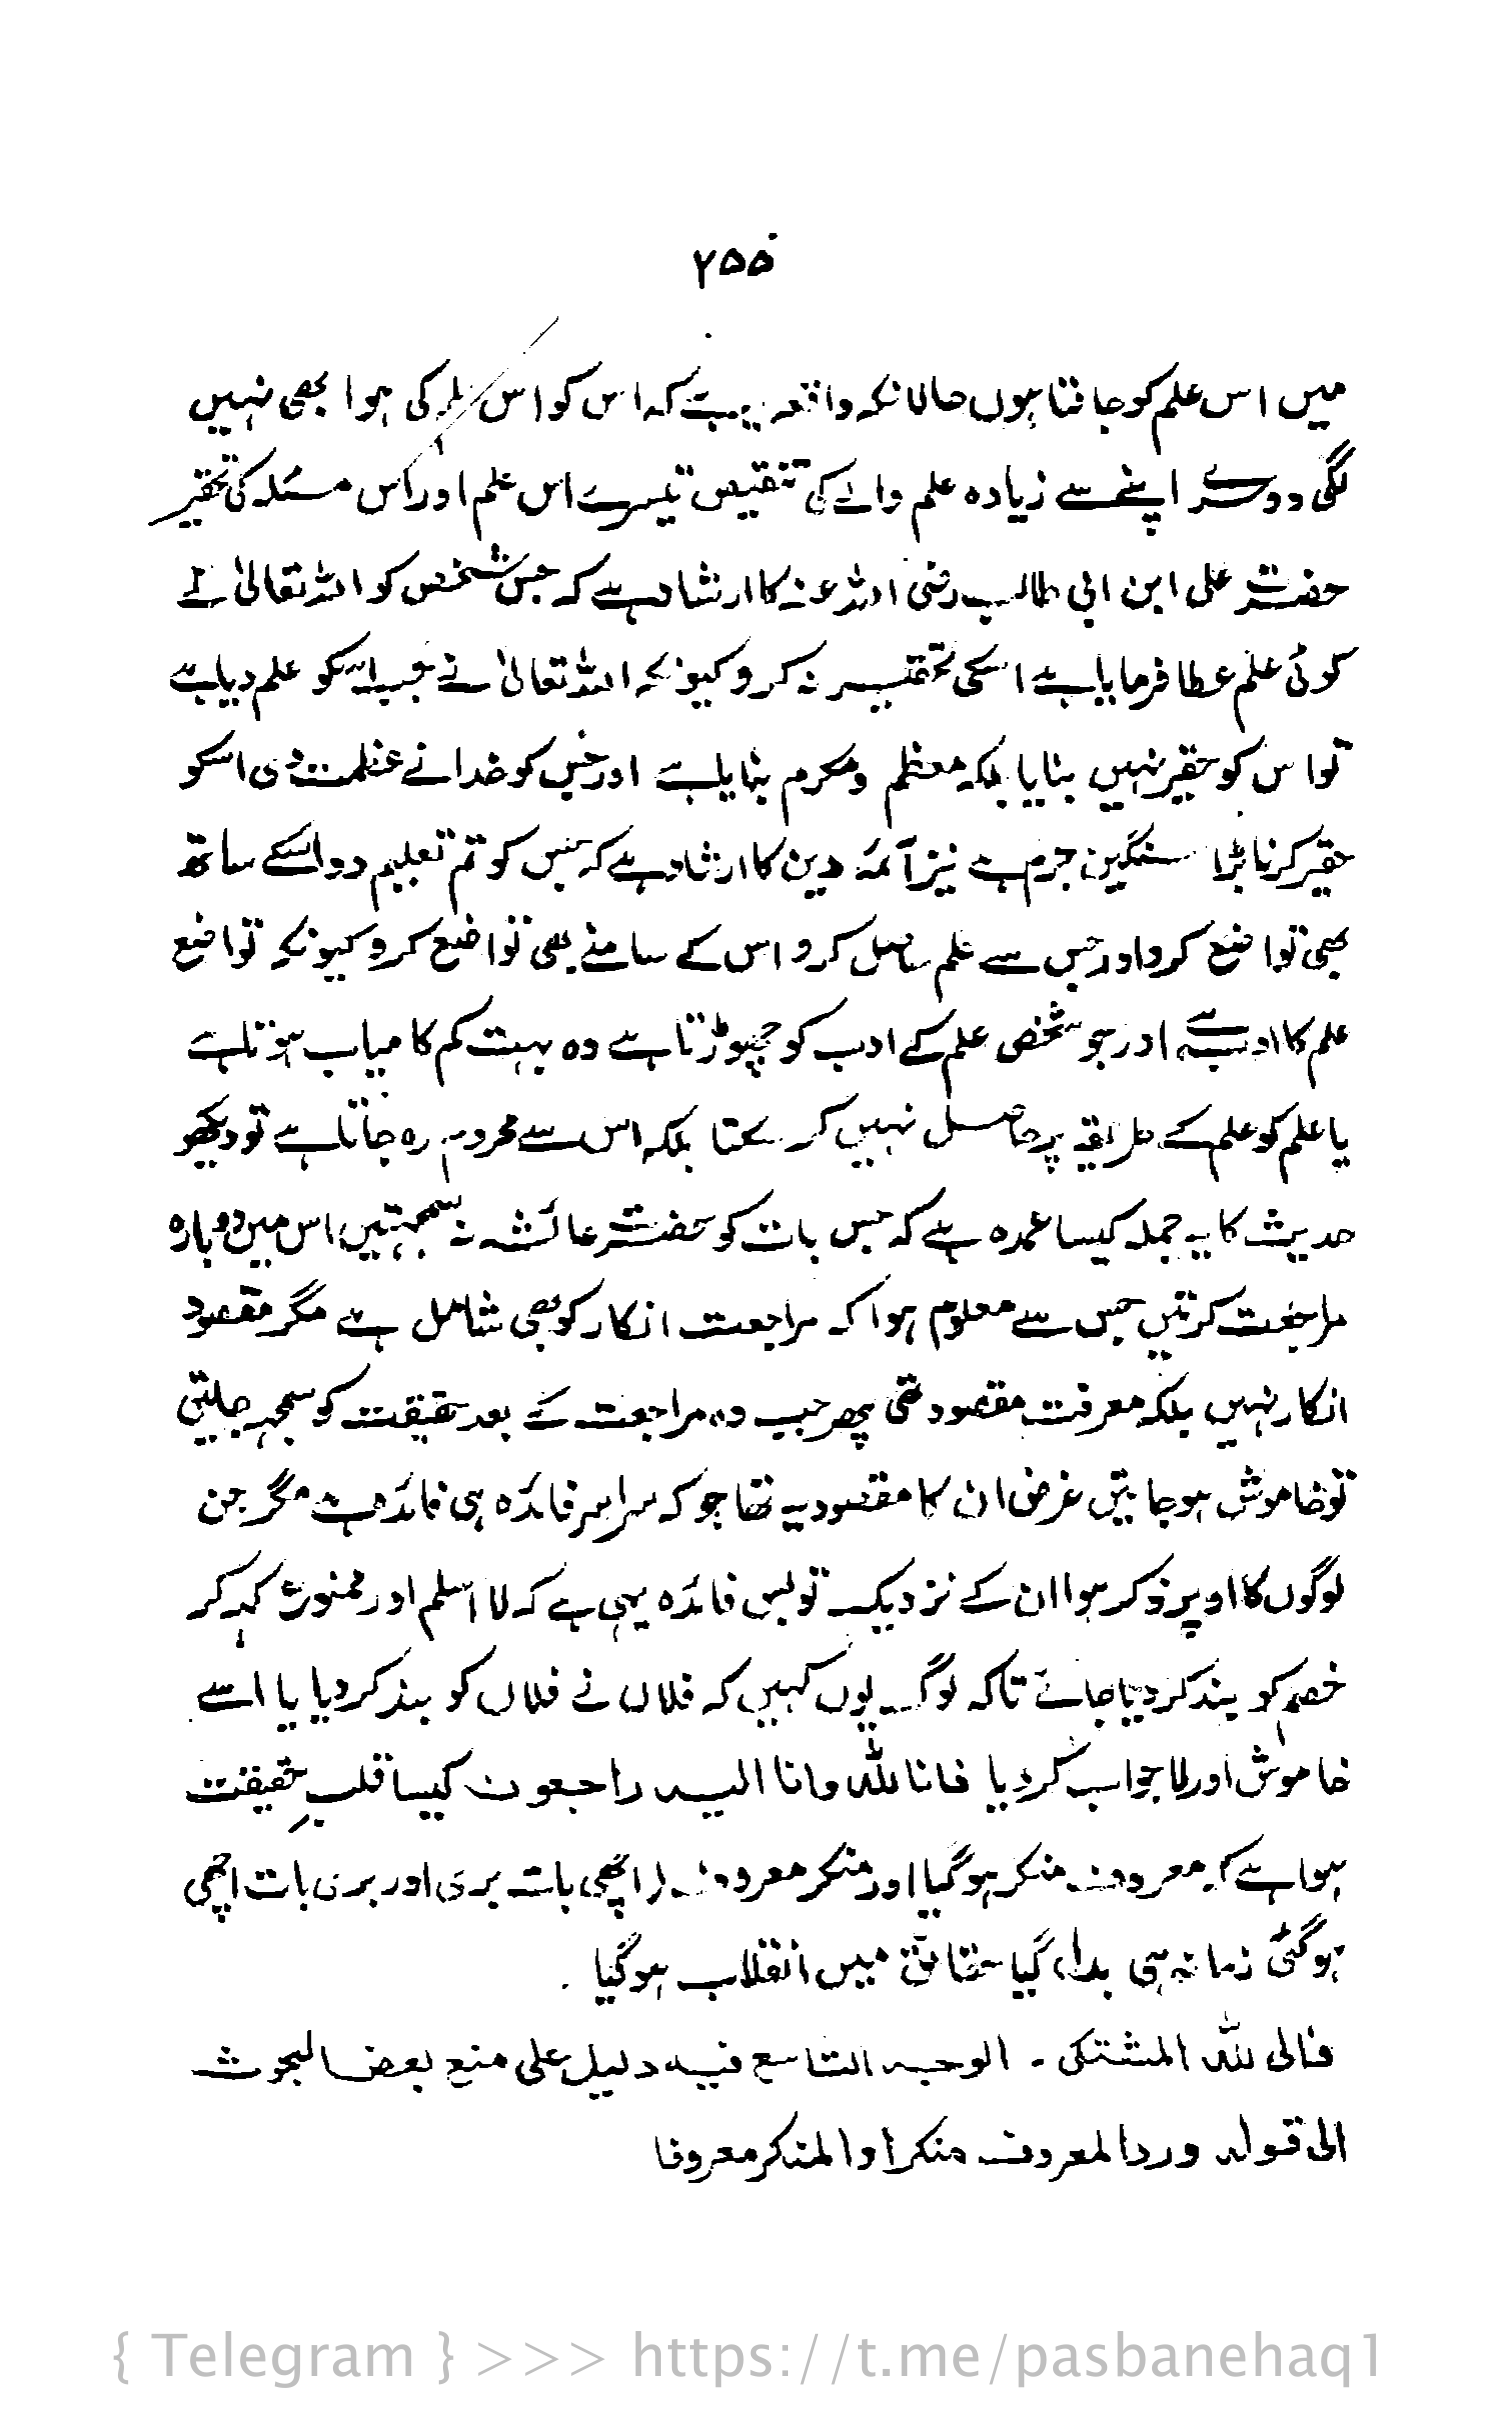 ۲۵۵
میں اس علم کو جانتا ہوں حالانکہ واقعہ یہ ہے کہ اس کو اس علم کی ہوا بھی نہیں
لگی دوسرے اپنے سے زیادہ علم والے کی تنقیص تیسرے اس علم اور اس مسئلہ کی تحقیر
حضرت علی ابن ابی طالب رضی اللہ عنہ کا ارشاد ہے کہ جس شخص کو اللہ تعالیٰ نے
کوئی علم عطا فرمایا ہے اسکی تحقیر نہ کرو کیونکہ اللہ تعالیٰ نے جب اسکو علم دیا ہے
تو اس کو حقیر نہیں بنایا بلکہ معظم و مکرم بنایا ہے اور جس کو خدا نے عظمت دی اسکو
حقیر کرنا بڑا سنگین جرم ہے نیز آئمہ دین کا ارشاد ہے کہ جس کو تم تعلیم دو اسکے ساتھ
بھی تواضع کرو اور جس سے علم حاصل کرو اس کے سامنے بھی تواضع کرو کیونکہ تواضع
علم کا ادب ہے اور جو شخص علم کے ادب کو چھوڑتا ہے وہ بہت کم کامیاب ہوتا ہے
یا علم کو علم کے طریقہ پر حاصل نہیں کر سکتا بلکہ اس سے محروم رہ جاتا ہے تو دیکھو
حدیث کا یہ جملہ کیسا عمدہ ہے کہ جس بات کو حضرت عائشہ نہ سمجہتیں اس میں دوبارہ
مراجعت کرتیں جس سے معلوم ہوا کہ مراجعت انکار کو بھی شامل ہے مگر مقصود
انکار نہیں بلکہ معرفت مقصود تھی پھر جب وہ مراجعت کے بعد حقیقت کو سمجہ جاتیں
تو خاموش ہو جاتیں غرض ان کا مقصود یہ تھا جو کہ سراسر فائدہ ہی فائدہ ہے مگر جن
لوگوں کا اوپر ذکر ہوا ان کے نزدیک تو بس فائدہ یہی ہے کہ لا اسلم اور ممنوع کہہ کر
خصم کو بند کر دیا جائے تاکہ لوگ یوں کہیں کہ فلاں نے فلاں کو بند کر دیا یا اسے
خاموش اور لاجواب کر دیا فانا للہ وانا الیہ راجعون کیسا قلبِ حقیقت
ہوا ہے کہ معروف منکر ہو گیا اور منکر معروف اچھی بات بری اور بری بات اچھی
ہو گئی زمانہ ہی بدل گیا حقائق میں انقلاب ہو گیا ۔
فالی للہ المشتکی ۔ الوجہ التاسع فیہ دلیل علی منع بعض البحوث
الی قولہ ورد المعروف منکرا والمنکر معروفا
{ Telegram } >>> https://t.me/pasbanehaq1